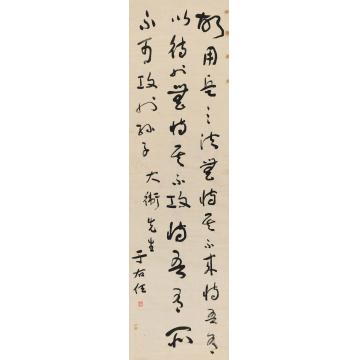 故用兵之法無恃其不來恃吾有
以待也無恃其不攻恃吾有所
不可攻也孫子 大 先生 于右任